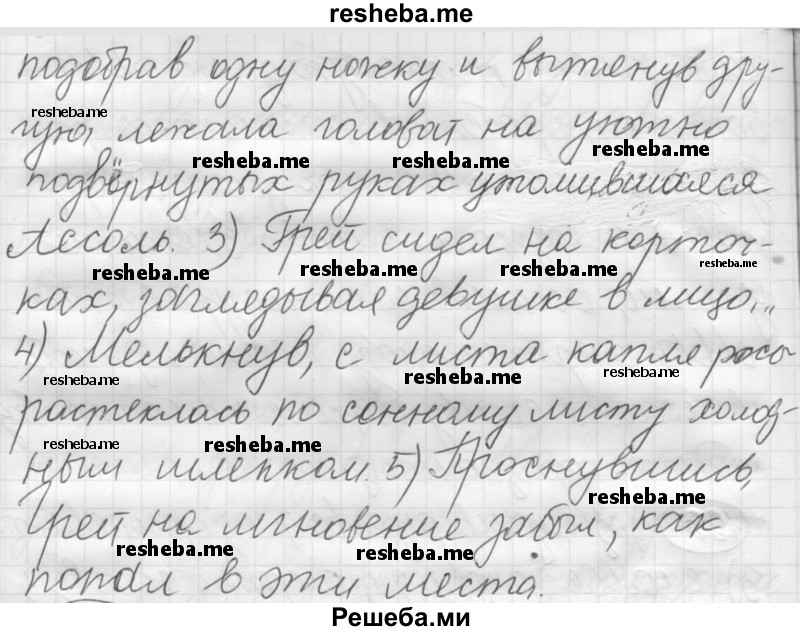 resheba.me
подобрав одну ножку и вытянув дру-
resheba.me
гую, лежала головой на уютно
resheba.me
resheba.me resheba.me
подвёрнутых руках утомившаяся
Ассоль. 3) Грей сидел на корточ-
resheba.me resheba.me resheba.me resheba.me
ках, заглядывая девушке в лицо...
4) Мелькнув, с листа капля росы
resheba.me resheba.me resheba.me
растеклась по сонному листу холод-
resheba.me resheba.me
ным шлепком. 5) Проснувшись,
resheba.me
Грей на мгновение забыл, как
resheba.me resheba.me
попал в эти места.
Решеба.ми